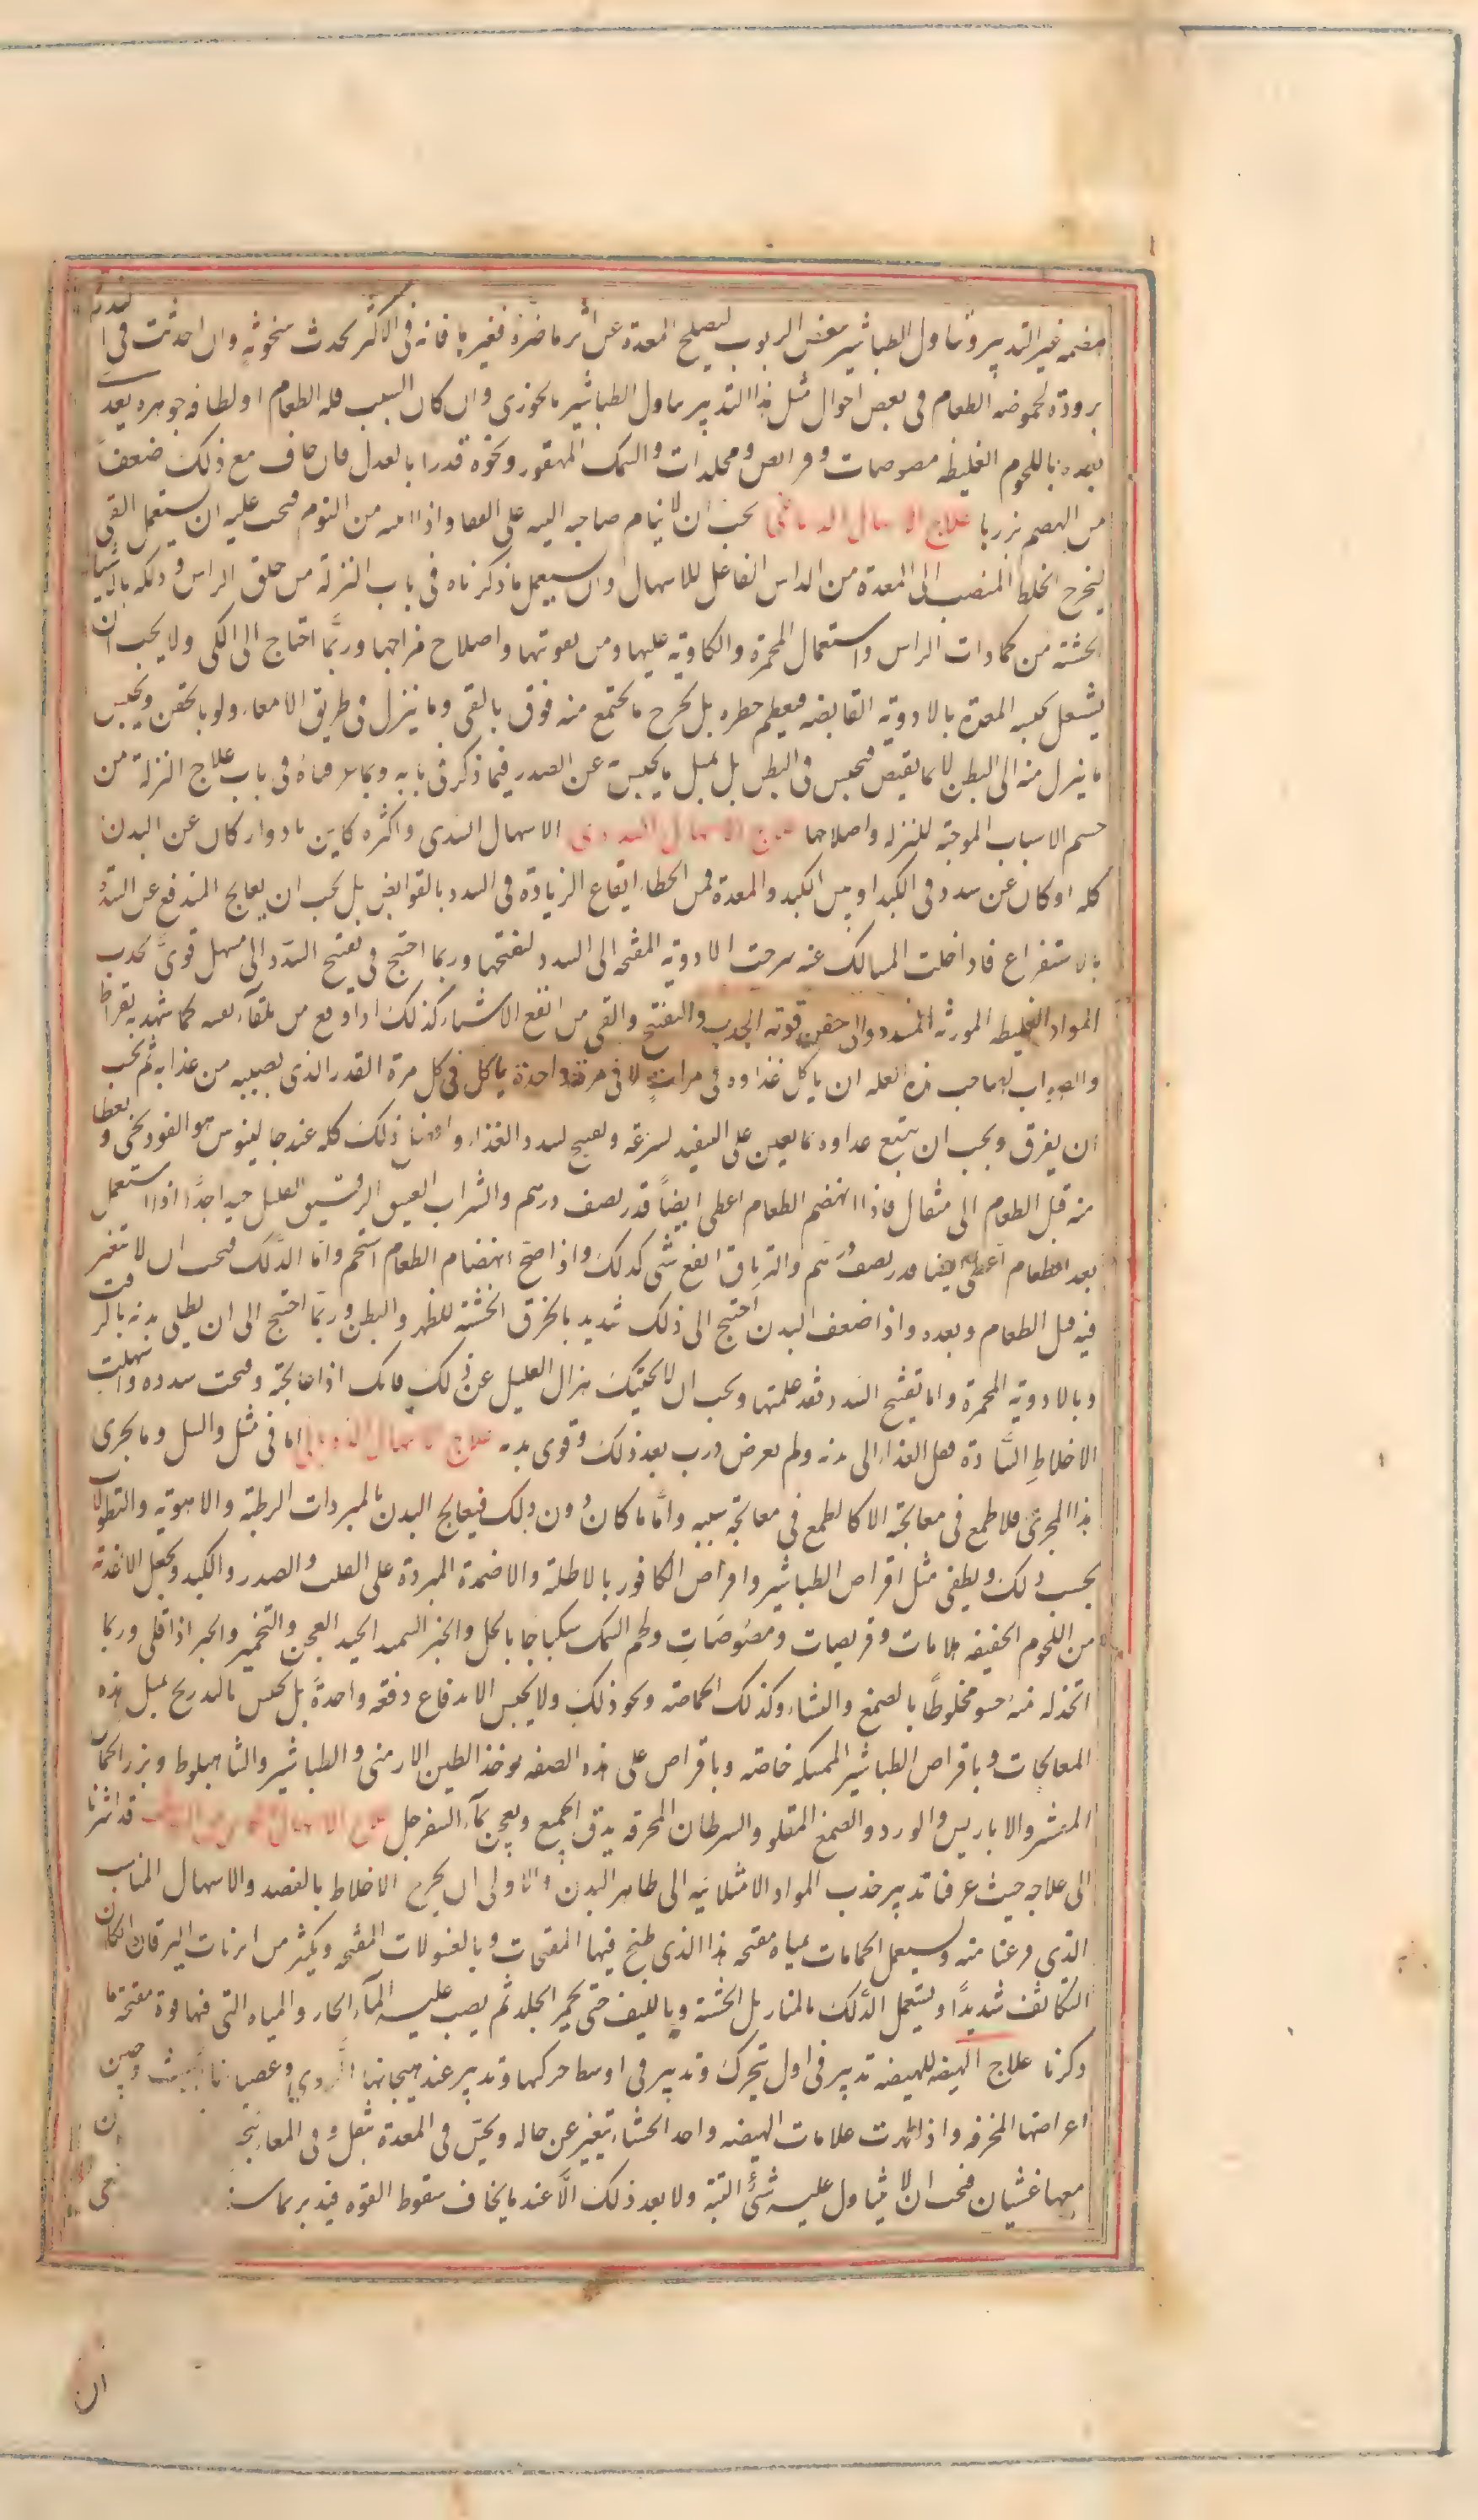 هضمه غير التدبير وتناول الطباشير ببعض الربوب ليصلح المعدة عن اثر ما ضره فغيرها فانه فى الاكثر يحدث سخونة وان احدثت فى الندرة
برودة لحموضه الطعام فى بعض احوال مثل هذا التدبير تناول الطباشير بالخوزى وان كان السبب قله الطعام او لطافه جوهره يعدى
بعده باللحوم الغليظه مصوصات وقرايص ومجلدات والسمك الممقور ونحوه قدرا بالعدل فان خاف مع ذلك ضعفا
من الهضم بزرها علاج الاسهال الدماغى يجب ان لا ينام صاحبه البته على القفا واذا انتبه من النوم فيجب عليه ان يستعمل القى
ليخرج الخلط المنصب الى المعدة من الراس الفاعل للاسهال وان يستعمل ما ذكرناه فى باب النزلة من حلق الراس ودلكه بالاشياء
الخشنه من كمادات الراس واستعمال المحمرة والكاويه عليها ومن تقويتها واصلاح مزاجها وربما احتاج الى الكى ولا يجب ان
يشتغل بحبسه المعدة بالادويه القابضه فيعظم خطره بل يخرج ما يجتمع منه فوق بالقى وما ينزل فى طريق الامعاء ولو بالحقن ويحبس
ما ينزل منه الى البطن لا بما يقبض فيحبس فى البطن بل بمثل ما يحبس عن الصدر فيما ذكر فى بابه وبما عرفناه فى باب علاج النزلة من
حسم الاسباب الموجبه للنزله واصلاحها علاج الاسهال السددى الاسهال السددى واكثره كاين بادوار كان عن البدن
كله او كان عن سدد فى الكبد او بين الكبد والمعدة فمن الخطاء ايقاع الزيادة فى السدد بالقوابض بل يجب ان يعالج المندفع عن السدد
بالاستفراغ فاذا خلت المسالك عنه سرحت الادويه المفتحه الى السدد لتفتحها وربما احتيج فى تفتيح السدد الى مسهل قوى يجذب
المواد الغليظه المورثه للسدد والى حقن قوته الجذب والتفتيح والقى من انفع الاشياء كذلك اذا وقع من تلقاء نفسه كما شهد به بقراط
والصواب لصاحب هذه العله ان ياكل غذاوه فى مرات لا فى مرة واحدة ياكل فى كل مرة القدر الذى يصيبه من غذايه ثم يجب
ان يفرق ويجب ان يتبع غذاوه بما يعين على التنفيذ لسرعه وتفتيح لسدد الغذاء وافضل ذلك كله عند جالينوس هو الفودنجى ويعطا
منه قبل الطعام الى مثقال فاذا انهضم الطعام اعطى ايضا قدر نصف درهم والشراب العتيق الرقيق القليل جيد جدا اذا استعمل
بعد الطعام اعطى ايضا قدر نصف درهم والترياق انفع شى كذلك واذا صح انهضام الطعام استحم واما الدلك فيجب ان لا تفتر
فيه قبل الطعام وبعده واذا ضعف البدن احتيج الى ذلك شديد بالخرق الخشنه للظهر والبطن وربما احتيج الى ان يطلى بدنه بالزفت
وبالادوية المحمرة واما تفتيح السدد فقد علمتها ويجب ان لا يحثيك هزال العليل عن ذلك فانك اذا عالجته وفتحت سدده واسهلت
الاخلاط السادة وصل الغذاء الى بدنه ولم يعرض ذرب بعد ذلك وقوى بدنه علاج الاسهال الذوبانى اما فى مثل والسل وما يجرى
هذا المجرى فلا طمع فى معالجته الا كالطمع فى معالجة سببه واما ما كان دون ذلك فيعالج البدن بالمبردات الرطبة والاهويه والنطولات
بحسب ذلك ويطفى مثل اقراص الطباشير واقراص الكافور بالاطلية والاضمدة المبردة على القلب والصدر والكبد ويجعل الاغذية
من اللحوم الخفيفه هلامات وقريصات ومصوصات ولحم السمك سكباجا بالخل والخبز السميد الجيد العجن والتخمير والخبز اذا قلى وربما
اتخذ له منه حسو مخلوطا بالصمغ والنشاء وكذلك الحماضه ونحو ذلك ولا يحبس الاندفاع دفعه واحدة بل يحبس بالتدريج بمثل هذه
المعالجات وباقراص الطباشير الممسكه خاصه وباقراص على هذه الصفه يوخذ الطين الارمنى والطباشير والشاهبلوط وبزر الحماض
المقشر والانبرباريس والورد والصمغ المقلو والسرطان المحرقه يدق الجميع ويعجن بماء السفرجل علاج الاسهال الكاين عن التكاثف قد اشرنا
الى علاجه حيث عرفنا تدبير جذب المواد الامتلائيه الى ظاهر البدن والاولى ان يخرج الاخلاط بالفصد والاسهال المناسب
الذى فرغنا منه ويستعمل الحمامات بمياه مفتحه هذا الذى طبخ فيها المفتحات وبالغسولات المفتحه ويكثر من ابزنات اليرقان ان كان
التكاثف شديدا ويستعمل الدلك بالمناديل الخشنه وبالليف حتى يحمر الجلد ثم يصب عليه الماء الحار والمياه التى فيها قوة مفتحه ما
ذكرنا علاج الهيضه للهيضه تدبير فى اول تتحرك وتدبير فى اوسط حركتها وتدبير عند هيجانها الردى وعصيانها وحين
اعراضها المخرفه واذا ظهرت علامات الهيضه واحد الجشاء يتغير عن حاله ويحس فى المعدة بثقل وفى المعا
معها غشيان فيجب ان لا يتناول عليه شئ البته ولا بعد ذلك الا عند ما يخاف سقوط القوه فيدبر بما
ان